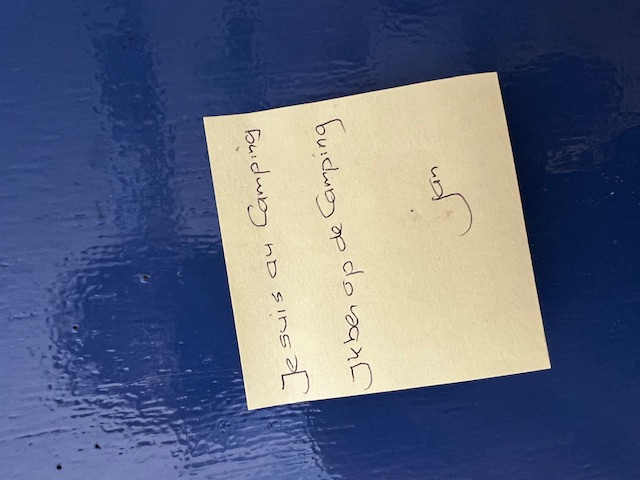 Je suis au Camping
Ik ben op de Camping
Jan